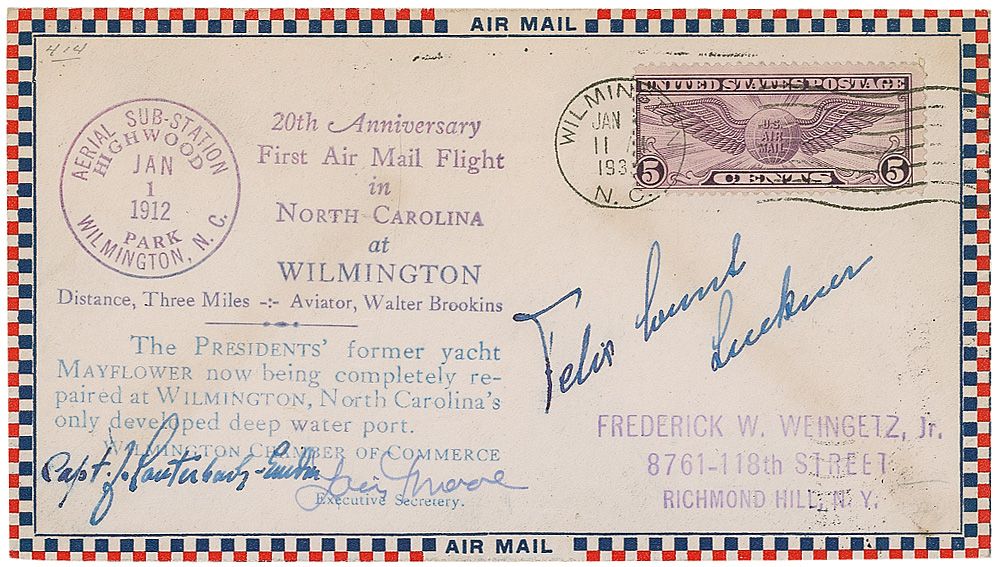 AIR MAIL
414
AERIAL SUB-STATION
HIGHWOOD
JAN
1
1912
PARK
WILMINGTON, N. C.
20th Anniversary
First Air Mail Flight
in
NORTH CAROLINA
at
WILMINGTON
Distance, Three Miles -:- Aviator, Walter Brookins
The PRESIDENTS' former yacht
MAYFLOWER now being completely re-
paired at WILMINGTON, North Carolina's
only developed deep water port.
WILMINGTON CHAMBER OF COMMERCE
Capt. J. Lauterbach-Emden
Louis Moore
Executive Secretery.
WILMIN
JAN
11 A
193
N. C.
UNITED STATES POSTAGE
U.S.
AIR
MAIL
5 CENTS 5
Felix Count
Luckner
FREDERICK W. WEINGETZ, Jr.
8761-118th STREET
RICHMOND HILL, N. Y.
AIR MAIL